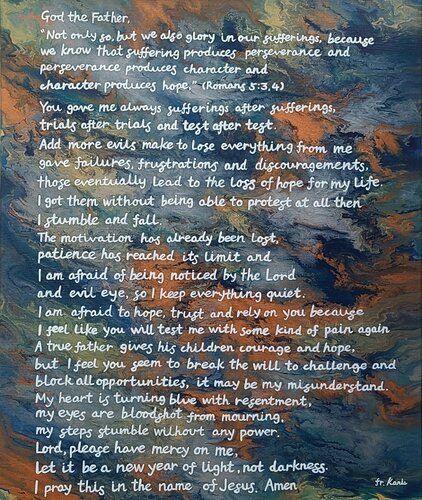 God the Father,
"Not only so, but we also glory in our sufferings, because
we know that suffering produces perseverance and
perseverance produces character and
character produces hope," (Romans 5:3,4)
You gave me always sufferings after sufferings,
trials after trials and test after test.
Add more evils make to lose everything from me
gave failures, frustrations and discouragements,
those eventually lead to the loss of hope for my life.
I got them without being able to protest at all then
I stumble and fall.
The motivation has already been lost,
patience has reached its limit and
I am afraid of being noticed by the Lord
and evil eye, so I keep everything quiet.
I am afraid to hope, trust and rely on you because
I feel like you will test me with some kind of pain again
A true father gives his children courage and hope,
but I feel you seem to break the will to challenge and
block all opportunities, it may be my misunderstand.
My heart is turning blue with resentment,
my eyes are bloodshot from mourning,
my steps stumble without any power.
Lord, please have mercy on me,
Let it be a new year of light, not darkness.
I pray this in the name of Jesus, Amen